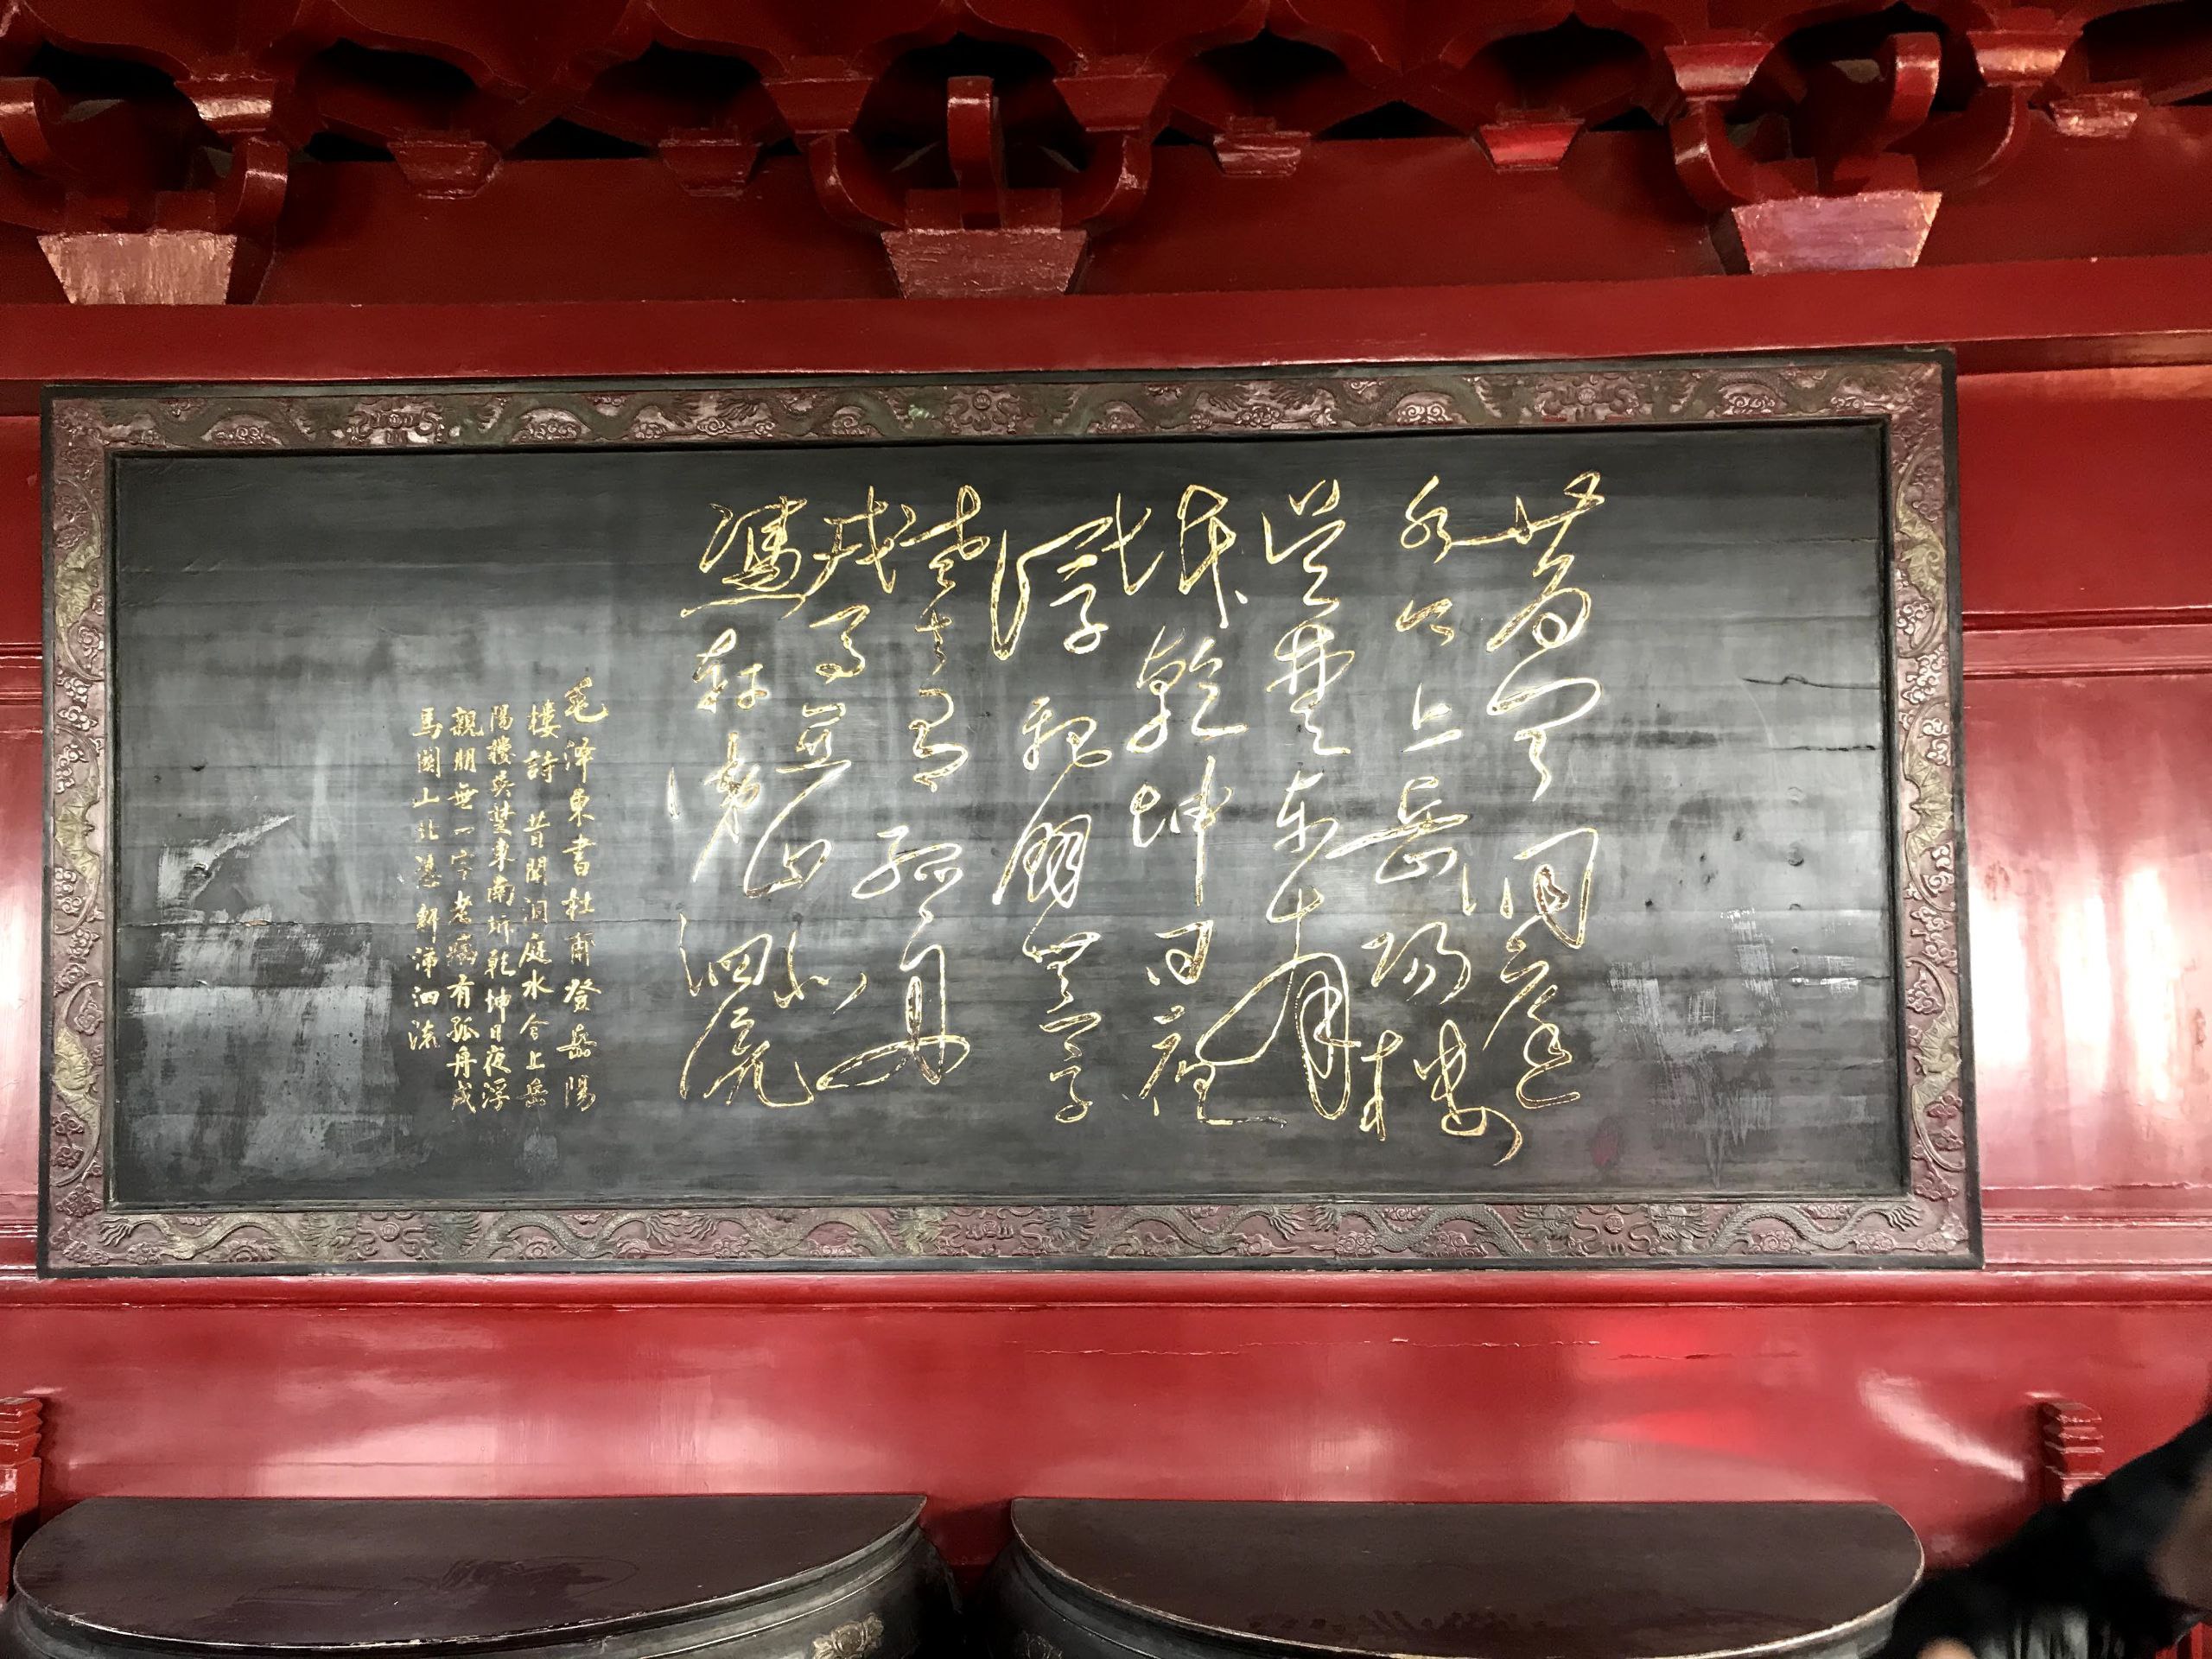 昔聞洞庭
水今上岳陽樓
吳楚東南
坼乾坤日夜
浮親朋無一字
老去有孤舟
戎馬關山北
憑軒涕泗流
毛澤東書杜甫登岳陽
樓詩 昔聞洞庭水今上岳
陽樓吳楚東南坼乾坤日夜浮
親朋無一字老病有孤舟戎
馬關山北憑軒涕泗流